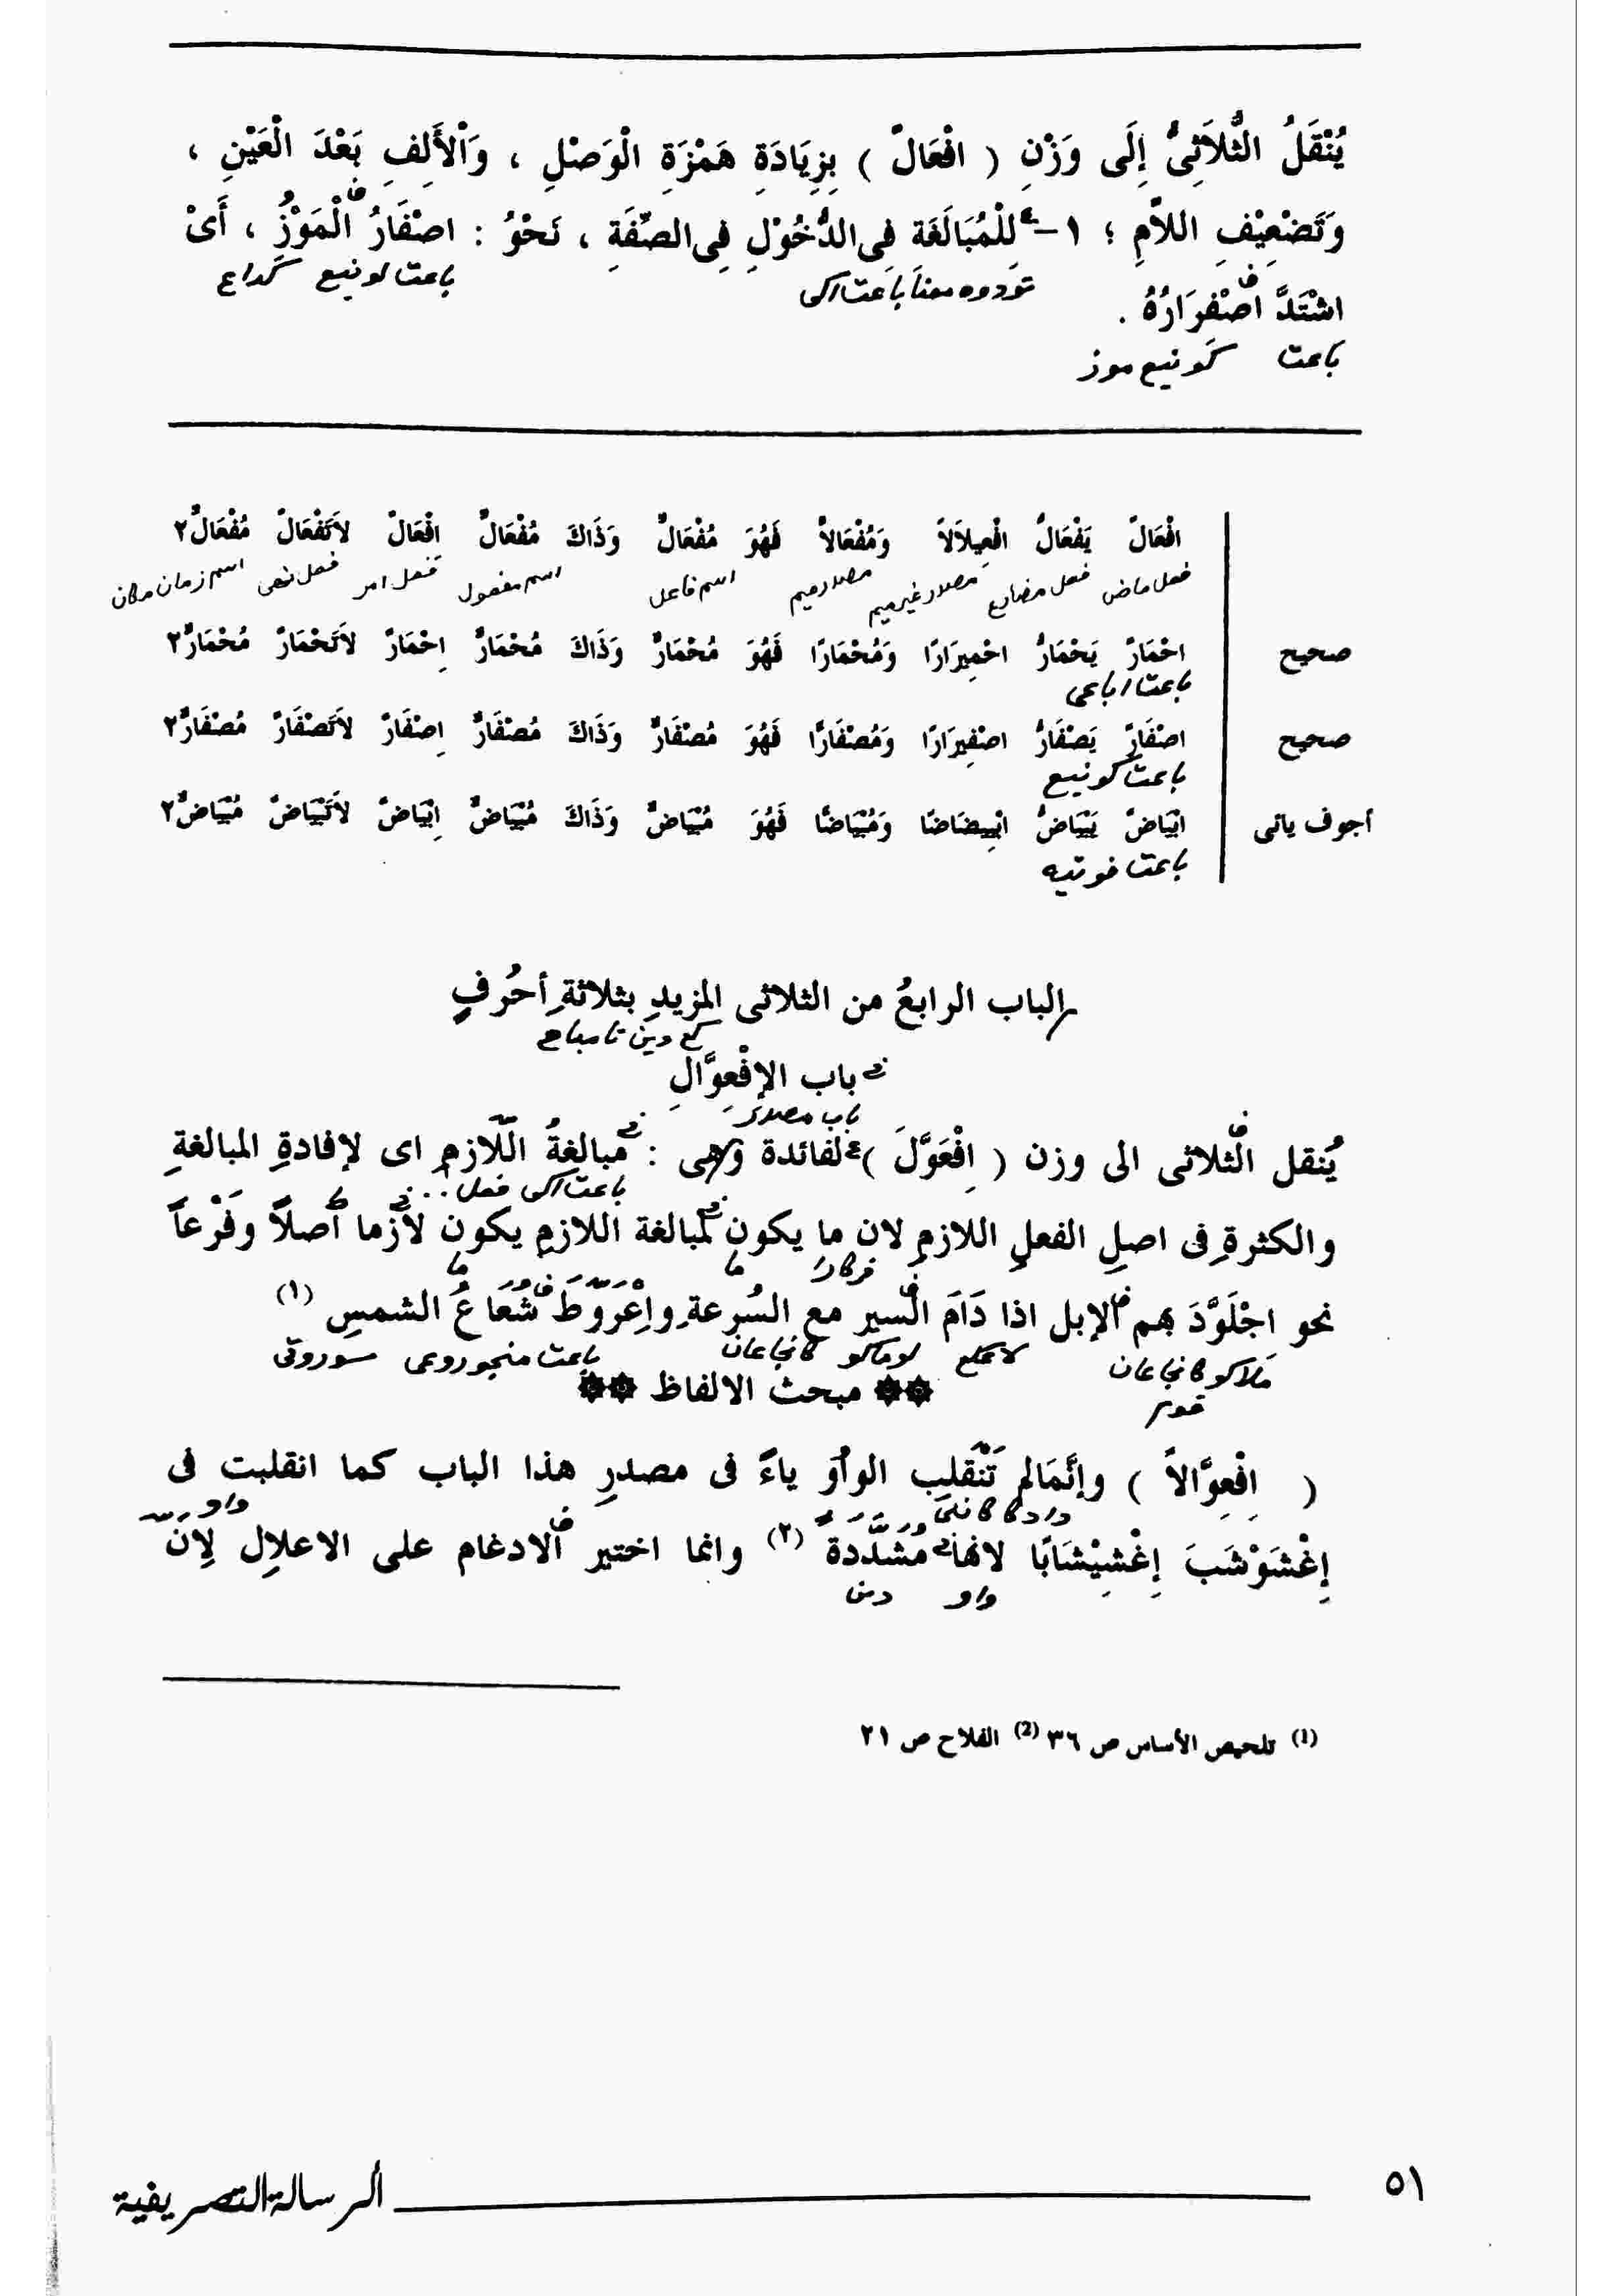 يُنْقَلُ الثُّلاَثِىُّ إِلَى وَزْنِ ( افْعَالَّ ) بِزِيَادَةِ هَمْزَةِ الْوَصْلِ ، وَاْلأَلِفِ بَعْدَ الْعَيْنِ ،
وَتَضْعِيْفِ اللاَّمِ ؛ ١- لِلْمُبَالَغَةِ فِى الدُّخُوْلِ فِى الصِّفَةِ ، نَحْوُ : اصْفَارَّ الْمَوْزُ ، أَىْ
باعت لونيع كداع
اشْتَدَّ اصْفِرَارُهُ .
باعت كونيع موز
افْعَالَّ يَفْعَالُّ افْعِيلاَلاً وَمُفْعَالاًّ فَهُوَ مُفْعَالٌّ وَذَاكَ مُفْعَالٌّ افْعَالَّ لاَتَفْعَالَّ مُفْعَالٌّ٢
فعل ماض فعل مضارع مصدر غير ميم مصدر ميم اسم فاعل اسم مفعول فعل امر فعل نهى اسم زمان مكان
صحيح احْمَارَّ يَحْمَارُّ احْمِيرَارًا وَمُحْمَارًّا فَهُوَ مُحْمَارٌّ وَذَاكَ مُحْمَارٌّ اِحْمَارَّ لاَتَحْمَارَّ مُحْمَارٌّ٢
باعت اباعى
صحيح اصْفَارَّ يَصْفَارُّ اصْفِيرَارًا وَمُصْفَارًّا فَهُوَ مُصْفَارٌّ وَذَاكَ مُصْفَارٌّ اِصْفَارَّ لاَتَصْفَارَّ مُصْفَارٌّ٢
باعت كونيع
أجوف يائى ابْيَاضَّ يَبْيَاضُّ ابْيِيضَاضًا وَمُبْيَاضًّا فَهُوَ مُبْيَاضٌّ وَذَاكَ مُبْيَاضٌّ اِبْيَاضَّ لاَتَبْيَاضَّ مُبْيَاضٌّ٢
باعت فوتيه
الباب الرابعُ من الثلاثى المزيدِ بثلاثةِ أحُرفٍ
باب الإفْعِوَّالِ
باب مصدر
يُنقل الثلاثى الى وزن ( اِفْعَوَّلَ ) لفائدة وهى : مبالغةُ اللّازمِ اى لإفادةِ المبالغةِ
باعت اكى فعل
والكثرةِ فى اصلِ الفعلِ اللازمِ لان ما يكون لمبالغة اللازمِ يكون لازما أصلاً وفَرْعاً
نحو اجْلَوَّدَ بهم الإبل اذا دَامَ السير مع السُرعةِ واِعْرَوَّطَ شُعَاعُ الشمسِ (١)
مبحث الالفاظ
( اِفْعِوَّالاً ) وإنَّمَا لم تَنْقَلِب الواوُ ياءً فى مصدرِ هذا الباب كما انقلبت فى
إغْشَوْشَبَ إغْشِيْشَابًا لانها مُشَدَّدةً (٢) وانما اختير الادغام على الاعلالِ لِاَنَّ
واو
(1) تلحيص الأساس ص ٣٦ (2) الفلاح ص ٢١
ألرسالة التصريفية ٥١